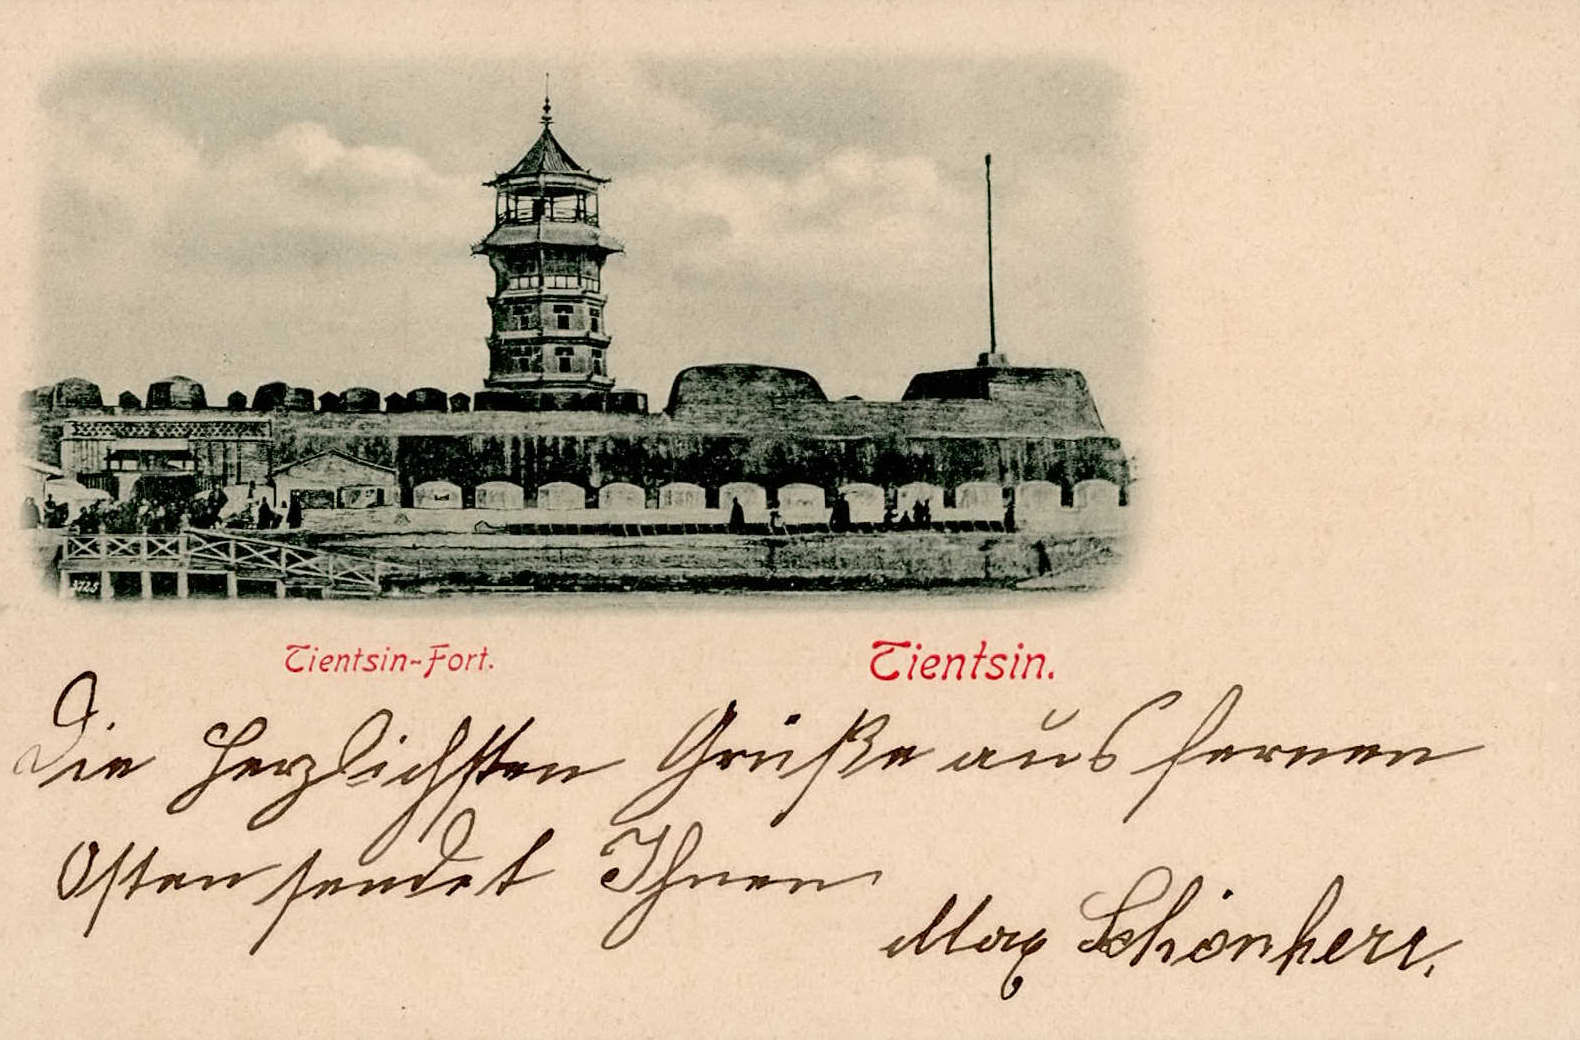 3725
Tientsin-Fort.
Tientsin.
Die herzlichsten Grüße aus fernen
Osten sendet Ihnen
Max Schönherr.